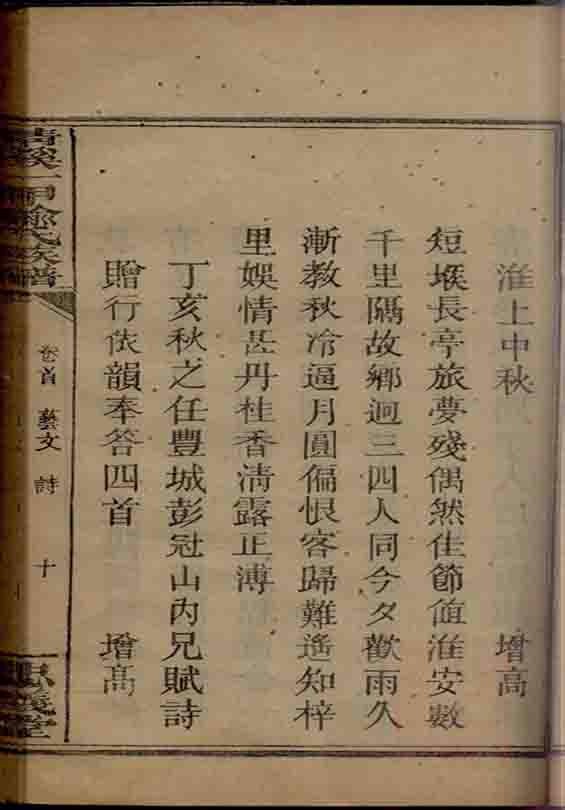 淮上中秋 增高
短堠長亭旅夢殘偶然佳節値淮安數
千里隔故鄉迥三四人同今夕歡雨久
漸教秋冷逼月圓偏恨客歸難遙知梓
里娛情甚丹桂香清露正溥
丁亥秋之任豐城彭冠山內兄賦詩
贈行依韻奉答四首 增高
族譜
卷首 藝文 詩 十
堂